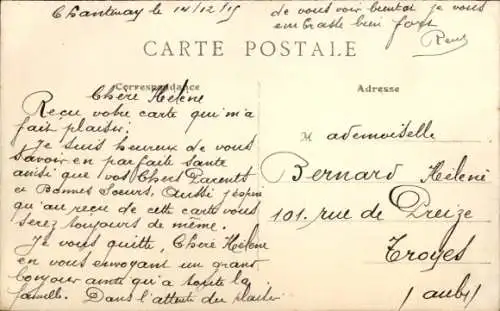 Chantenay le 14/12/15
CARTE POSTALE
Correspondance
Chère Hélène
Reçu votre carte qui m'a
fait plaisir.
Je suis heureux de vous
savoir en parfaite santé
ainsi que vos Chers Parents
et Bonnes Soeurs. Aussi j'espère
qu'au reçu de cette carte vous
serez toujours de même.
Je vous quitte, Chère Hélène
en vous envoyant un grand
bonjour ainsi qu'à toute la
famille. Dans l'attente du plaisir
de vous voir bientôt je vous
embrasse bien fort
René
Adresse
Mademoiselle
Bernard Hélène
101. rue de Preize
Troyes
(aube)